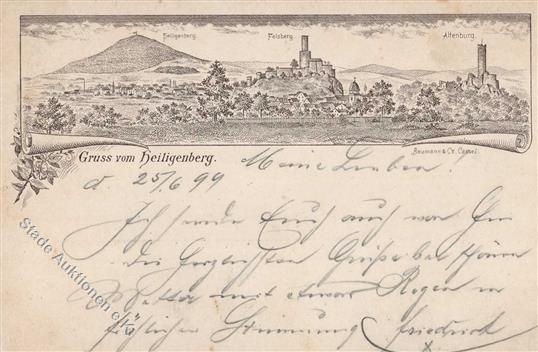 Heiligenberg. Felsberg. Altenburg.
Gruss vom Heiligenberg.
Baumann & Co, Cassel.
Meine Lieben!
d. 25/6 99
Ich sende Euch auch von hier
die herzlichsten Grüße bei schönem
Wetter mit etwas Regen in
fröhlicher Stimmung Friedrich
Stade Auktionen e.K.